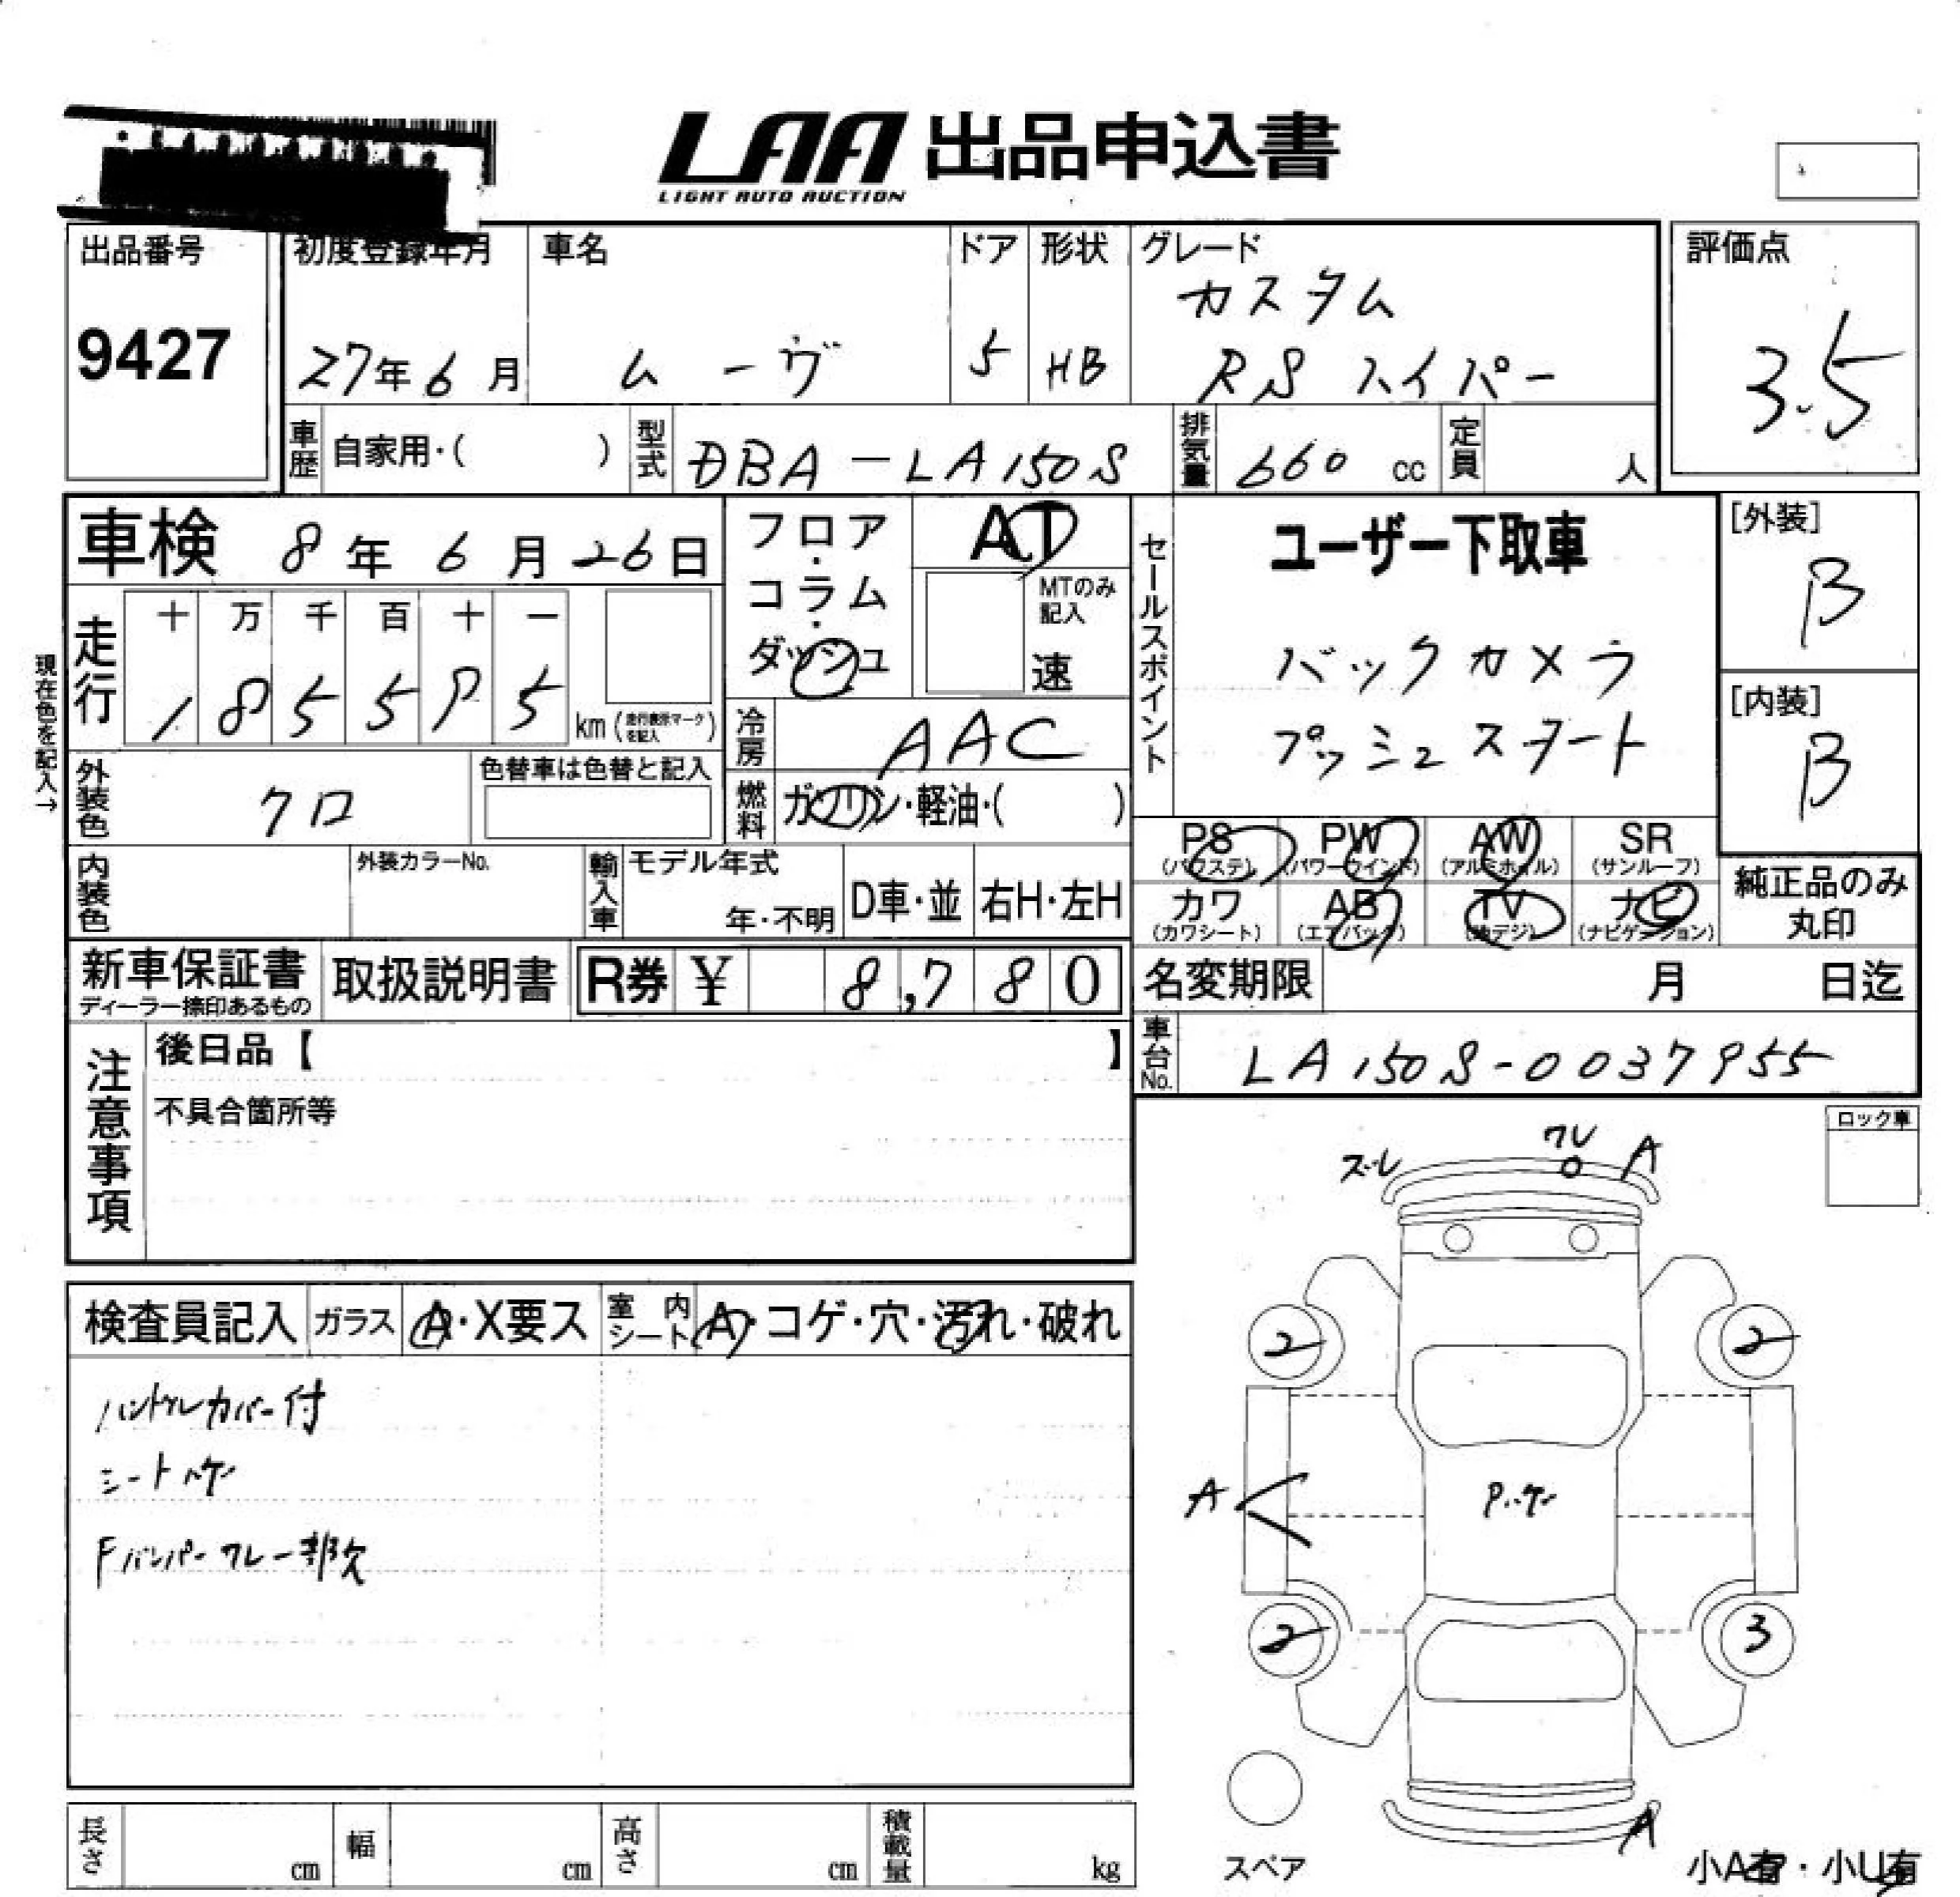 LAA 出品申込書
LIGHT AUTO AUCTION
出品番号
9427
初度登録年月
27年6月
車名
ムーヴ
ドア
5
形状
HB
グレード
カスタム
RSハイパー
評価点
3.5
車歴
自家用・( )
型式
DBA-LA150S
排気量
660 cc
定員
人
車検 8年6月26日
フロア・コラム・ダッシュ
AT
MTのみ記入
速
セールスポイント
ユーザー下取車
バックカメラ
プッシュスタート
[外装]
B
[内装]
B
現在色を記入→
走行
十 万 千 百 十 一
1 8 5 5 9 5
km(走行表示マークを記入)
冷房
AAC
外装色
クロ
色替車は色替と記入
燃料
ガソリン・軽油・( )
PS (パワステ)
PW (パワーウインド)
AW (アルミホイル)
SR (サンルーフ)
カワ (カワシート)
AB (エアバッグ)
TV (地デジ)
ナビ (ナビゲーション)
純正品のみ丸印
内装色
外装カラーNo.
輸入車
モデル年式
年・不明
D車・並
右H・左H
新車保証書
ディーラー捺印あるもの
取扱説明書
R券 ¥ 8,780
名変期限 月 日迄
注意事項
後日品【 】
不具合箇所等
車台No.
LA150S-0037955
ロック車
検査員記入
ガラス
A・X要ス
室内シート
A・コゲ・穴・汚れ・破れ
ハンドルカバー付
シートハゲ
Fバンパーワレ一部欠
ズレ
ワレ
A
2
2
A
P.ハゲ
2
3
A
スペア
小A有・小U有
長さ cm
幅 cm
高さ cm
積載量 kg